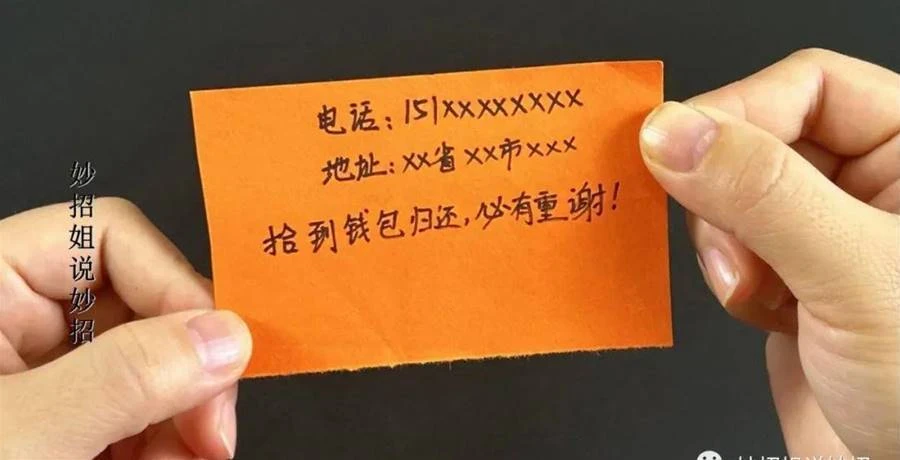 电话：151xxxxxxxx
地址：xx省xx市xxx
拾到钱包归还，必有重谢！
妙招姐说妙招